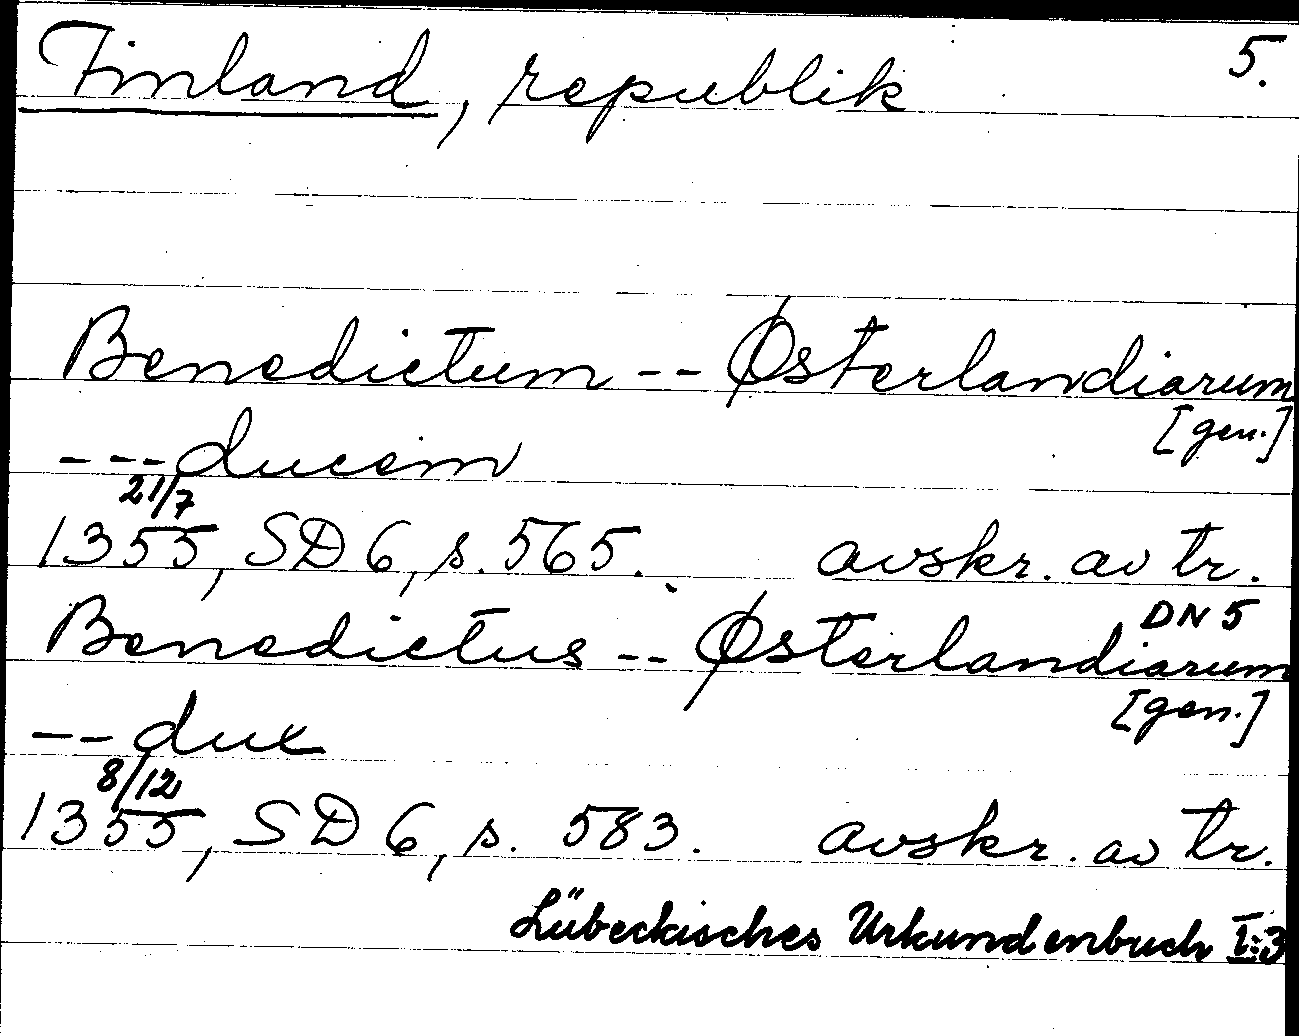 Finland, republik 5.
Benedictum -- Østerlandiarum
[gen.]
--- ducem
21/7
1355, SD 6, s. 565. avskr. av tr.
DN 5
Benedictus -- Østerlandiarum
[gen.]
-- dux
8/12
1355, SD 6, s. 583. avskr. av tr.
Lübeckisches Urkundenbuch I:3